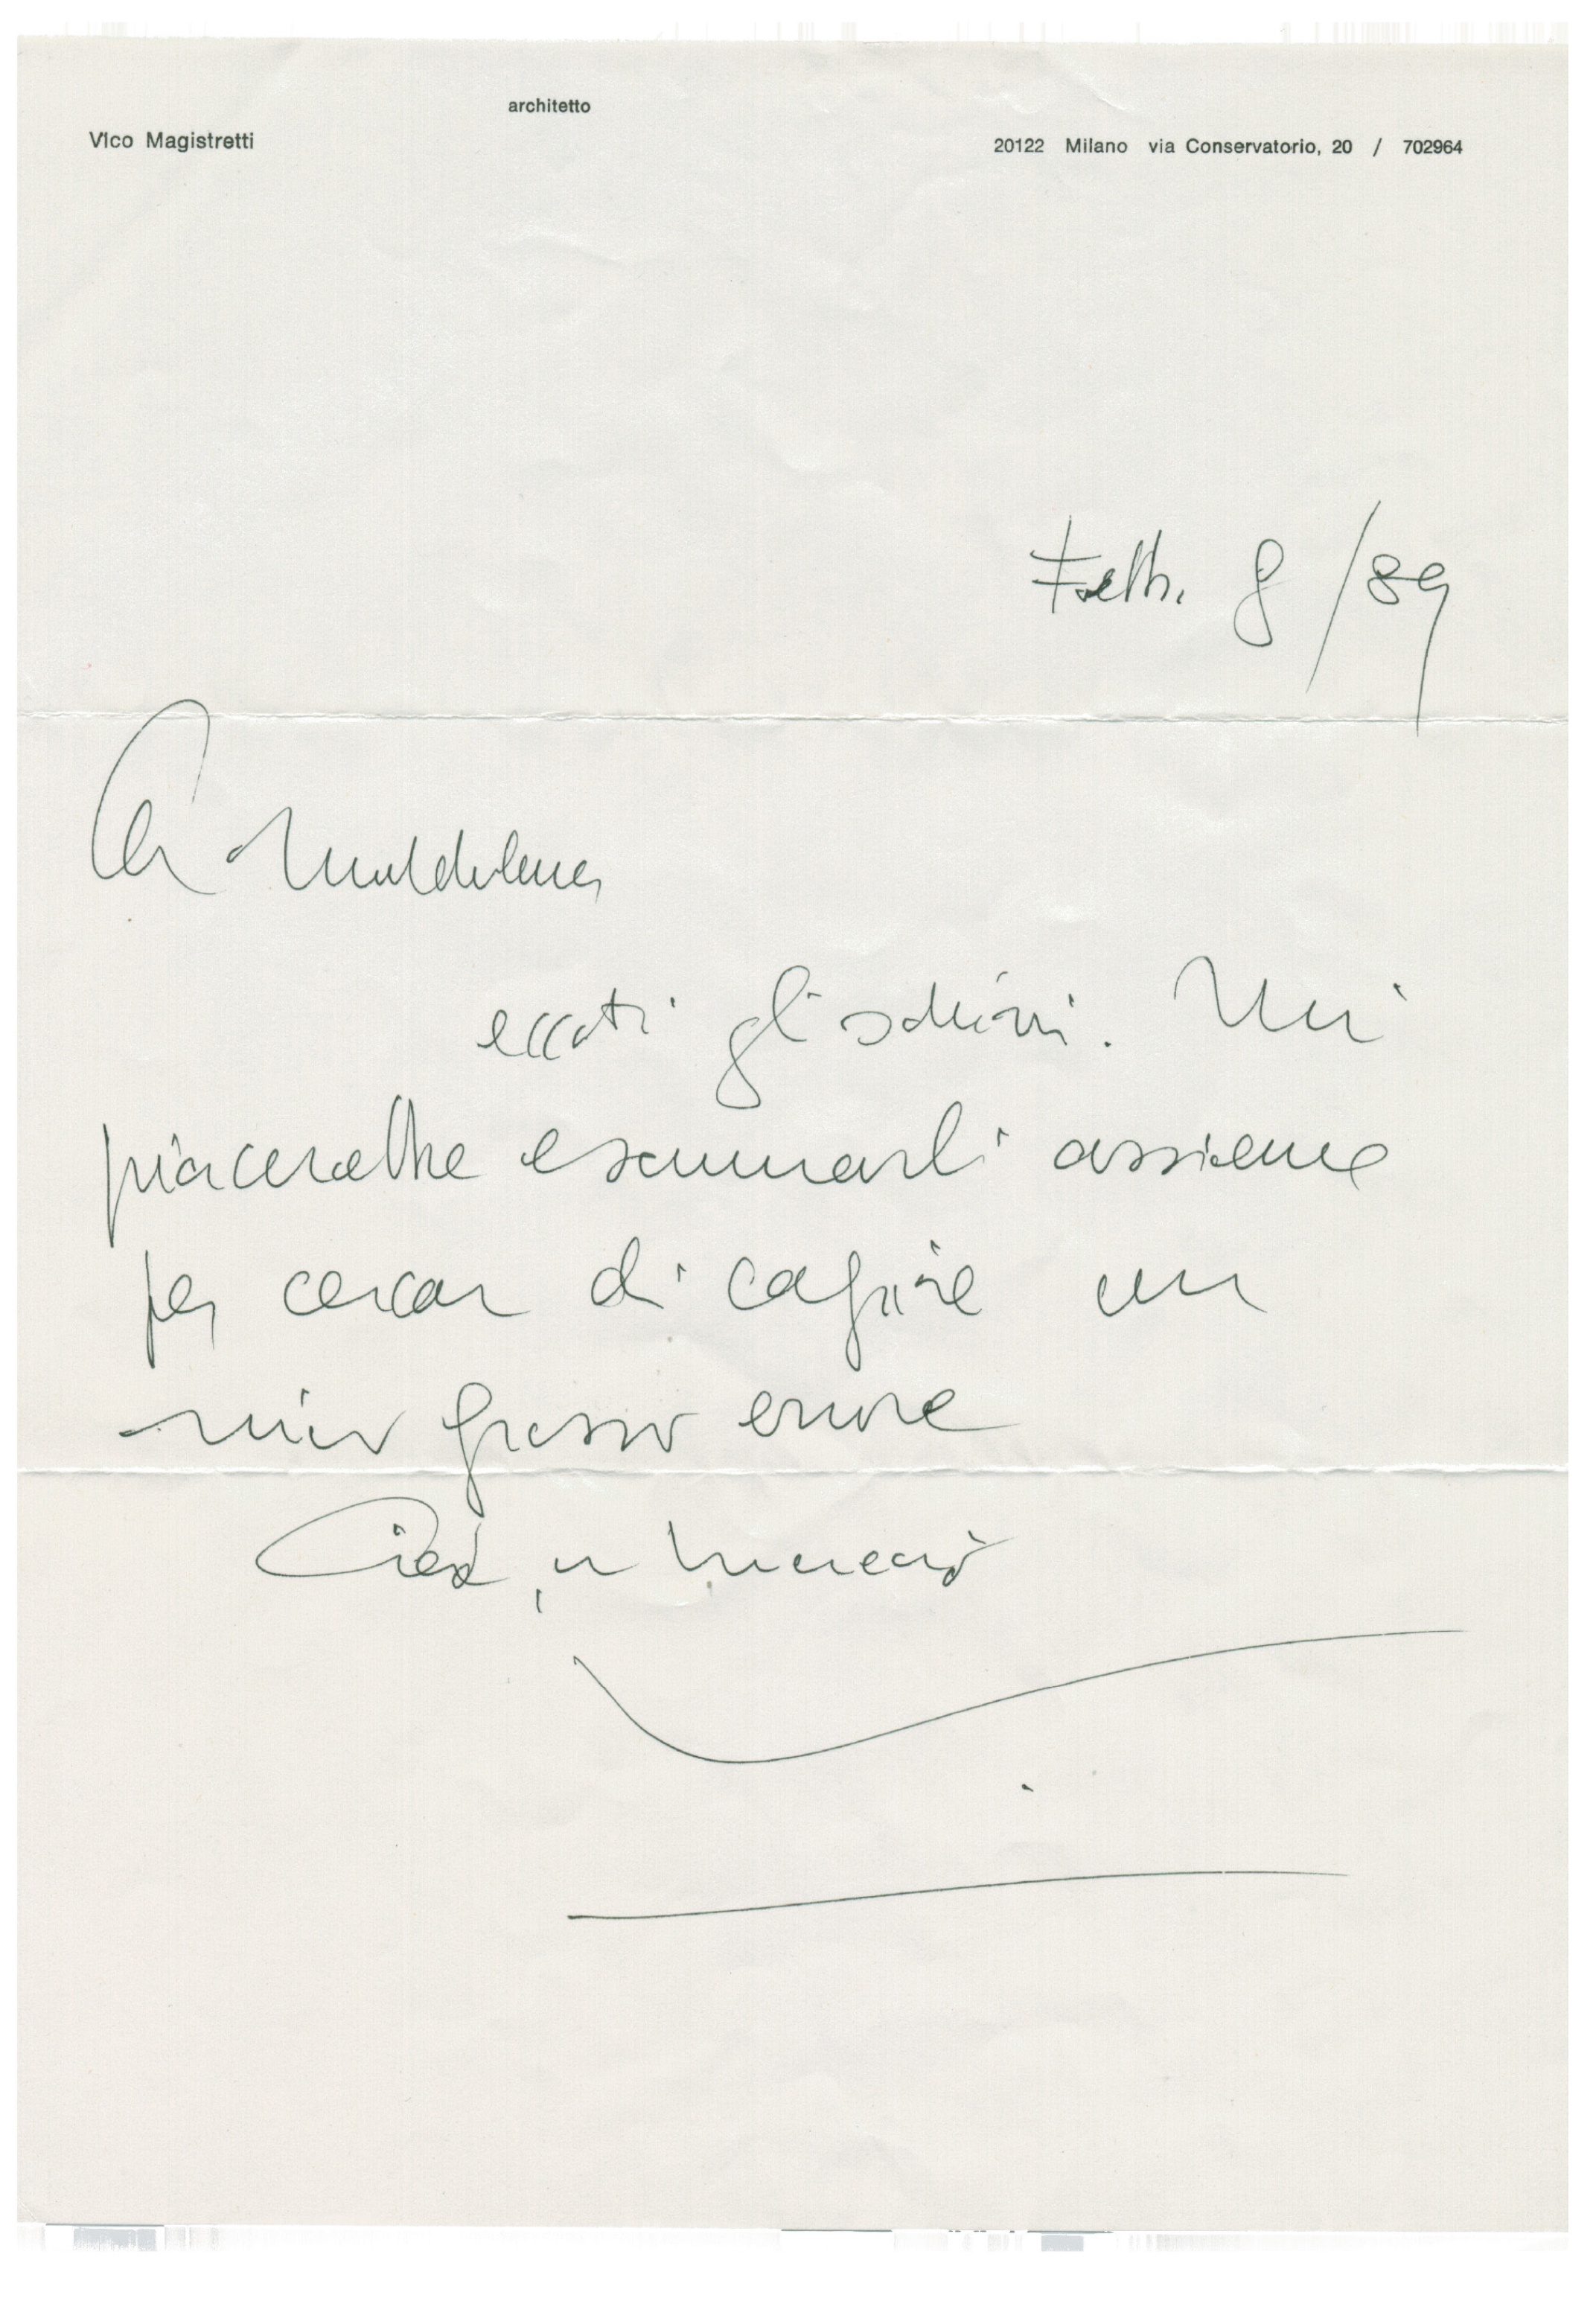 architetto
Vico Magistretti
20122 Milano via Conservatorio, 20 / 702964
Febb. 8 /89
Cara Maddalena
eccoti gli schizzi. Mi
piacerebbe esaminarli assieme
per cercar di capire un
mio grosso errore
Ciao, un abbraccio